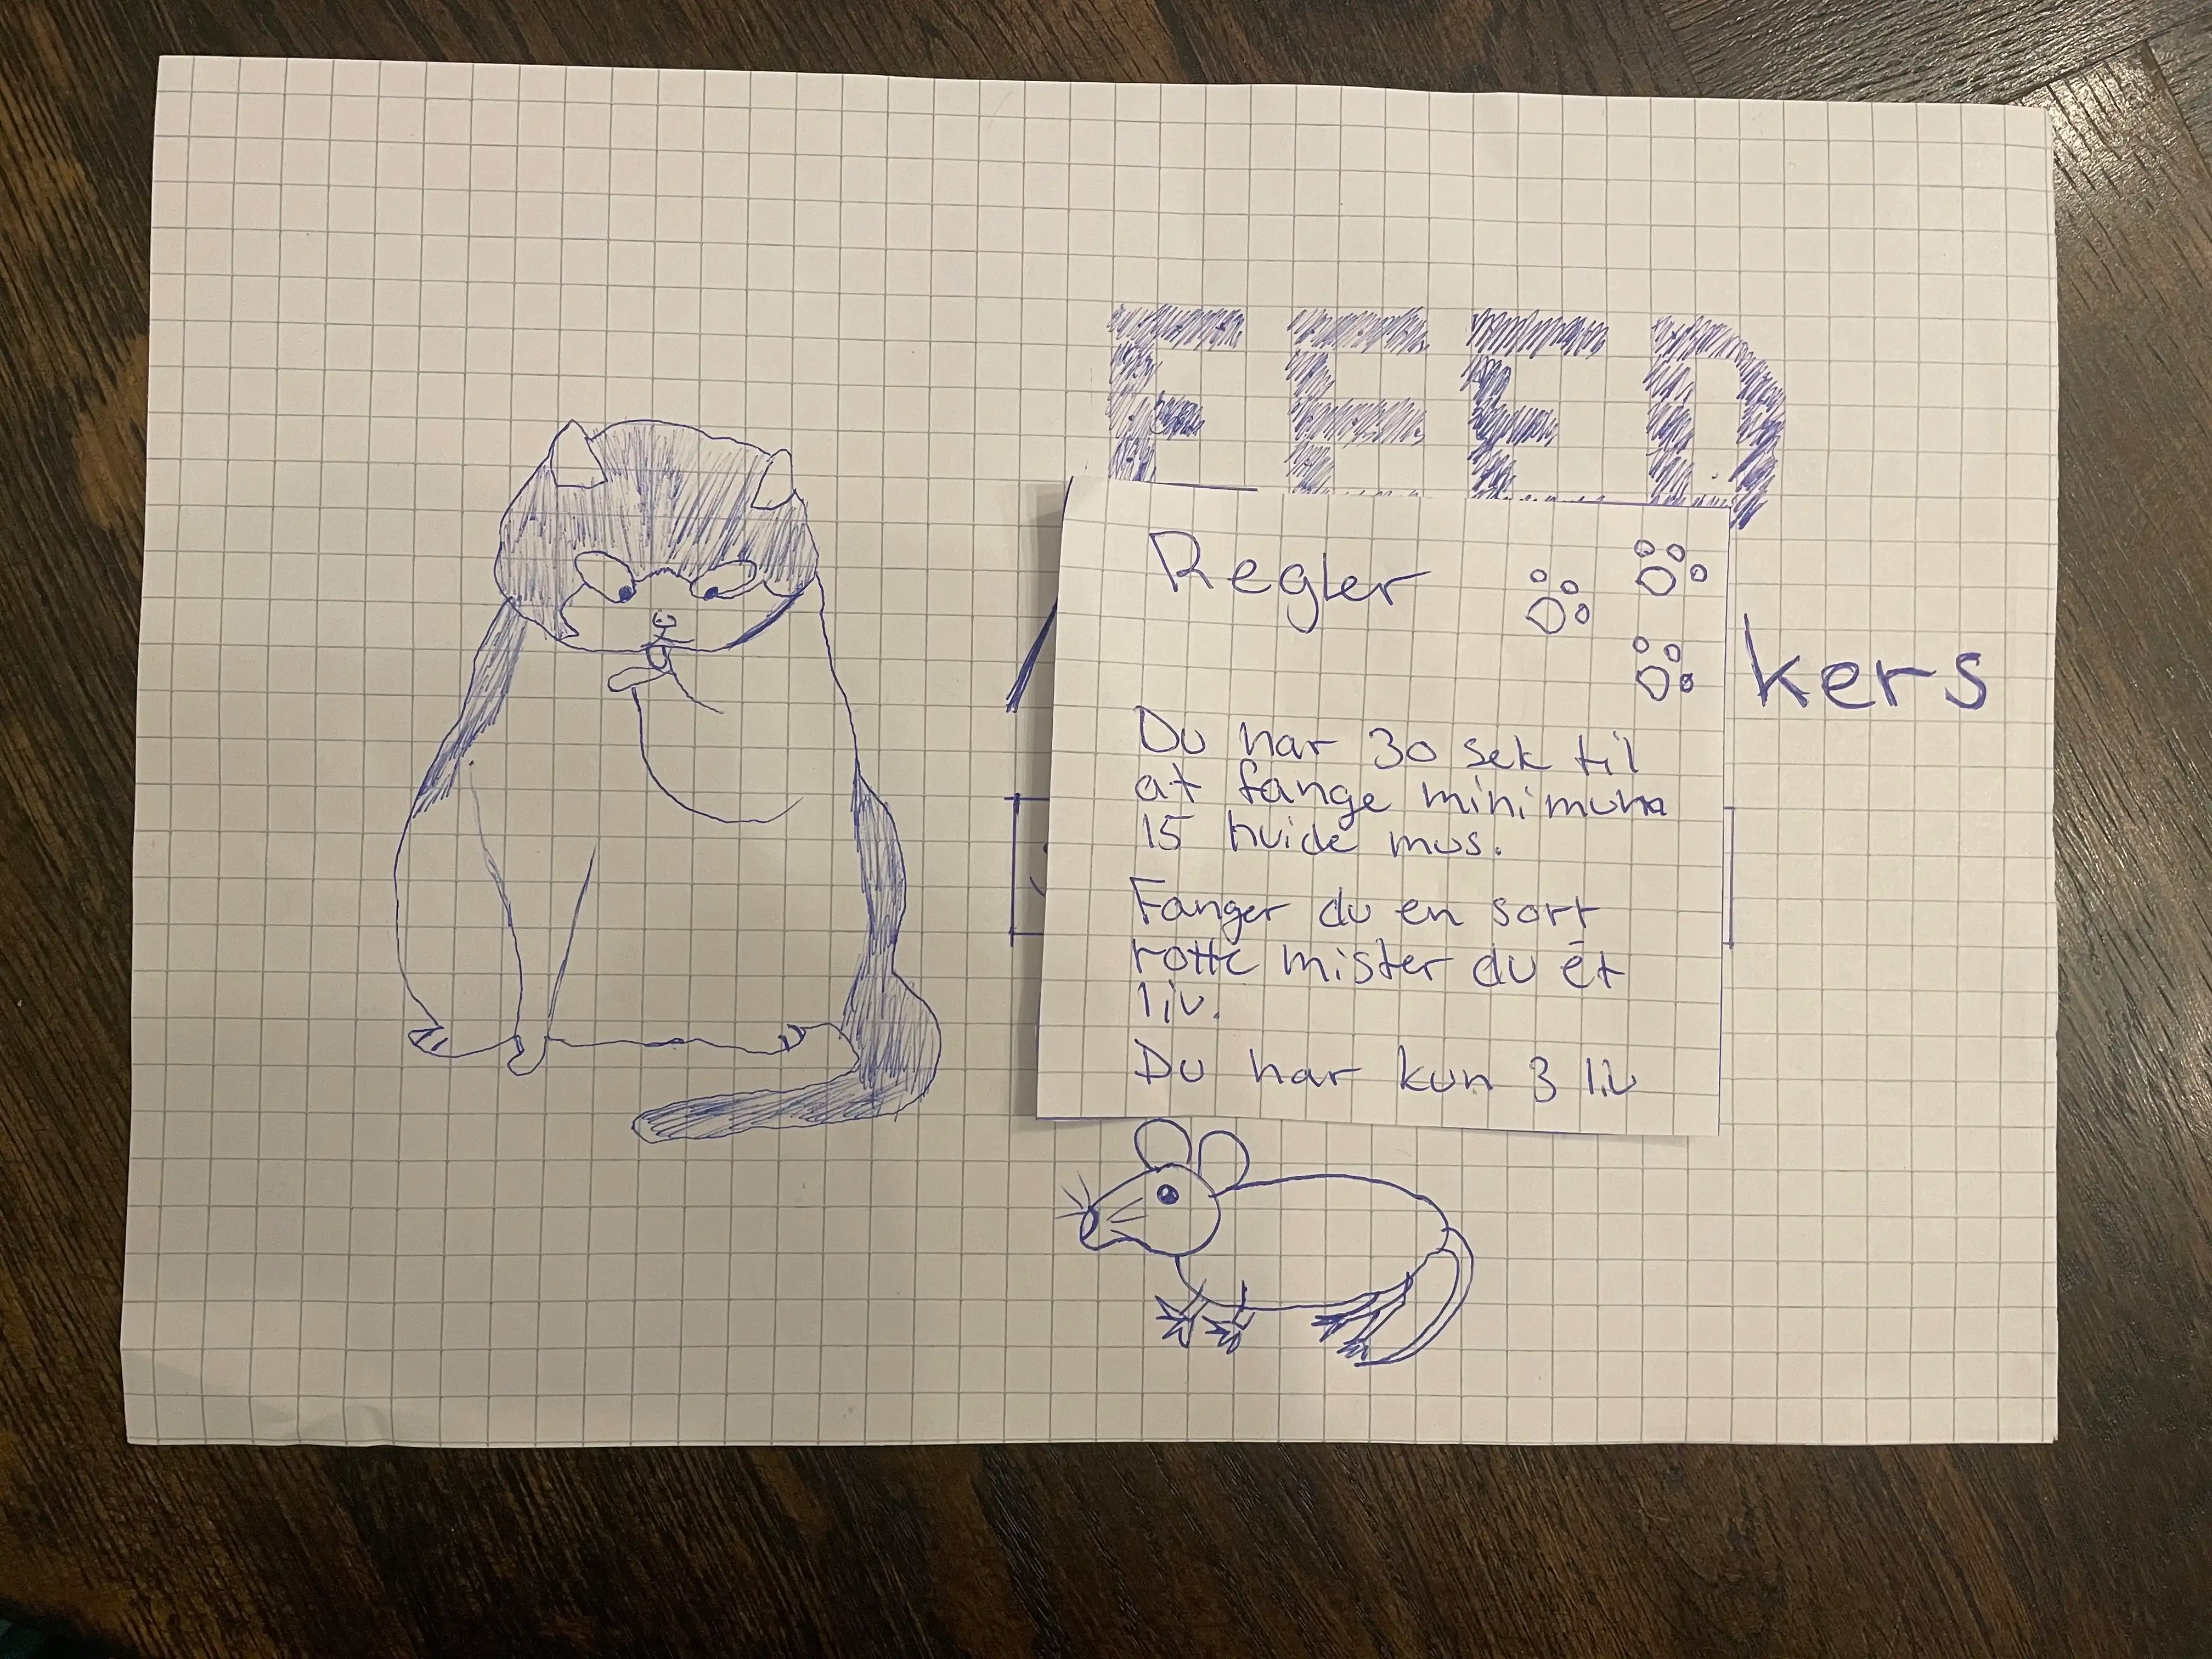 FEED
kers
Regler
Du har 30 sek til
at fange minimum
15 hvide mus.
Fanger du en sort
rotte mister du ét
liv.
Du har kun 3 liv